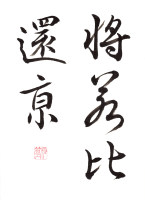 將若比
還京